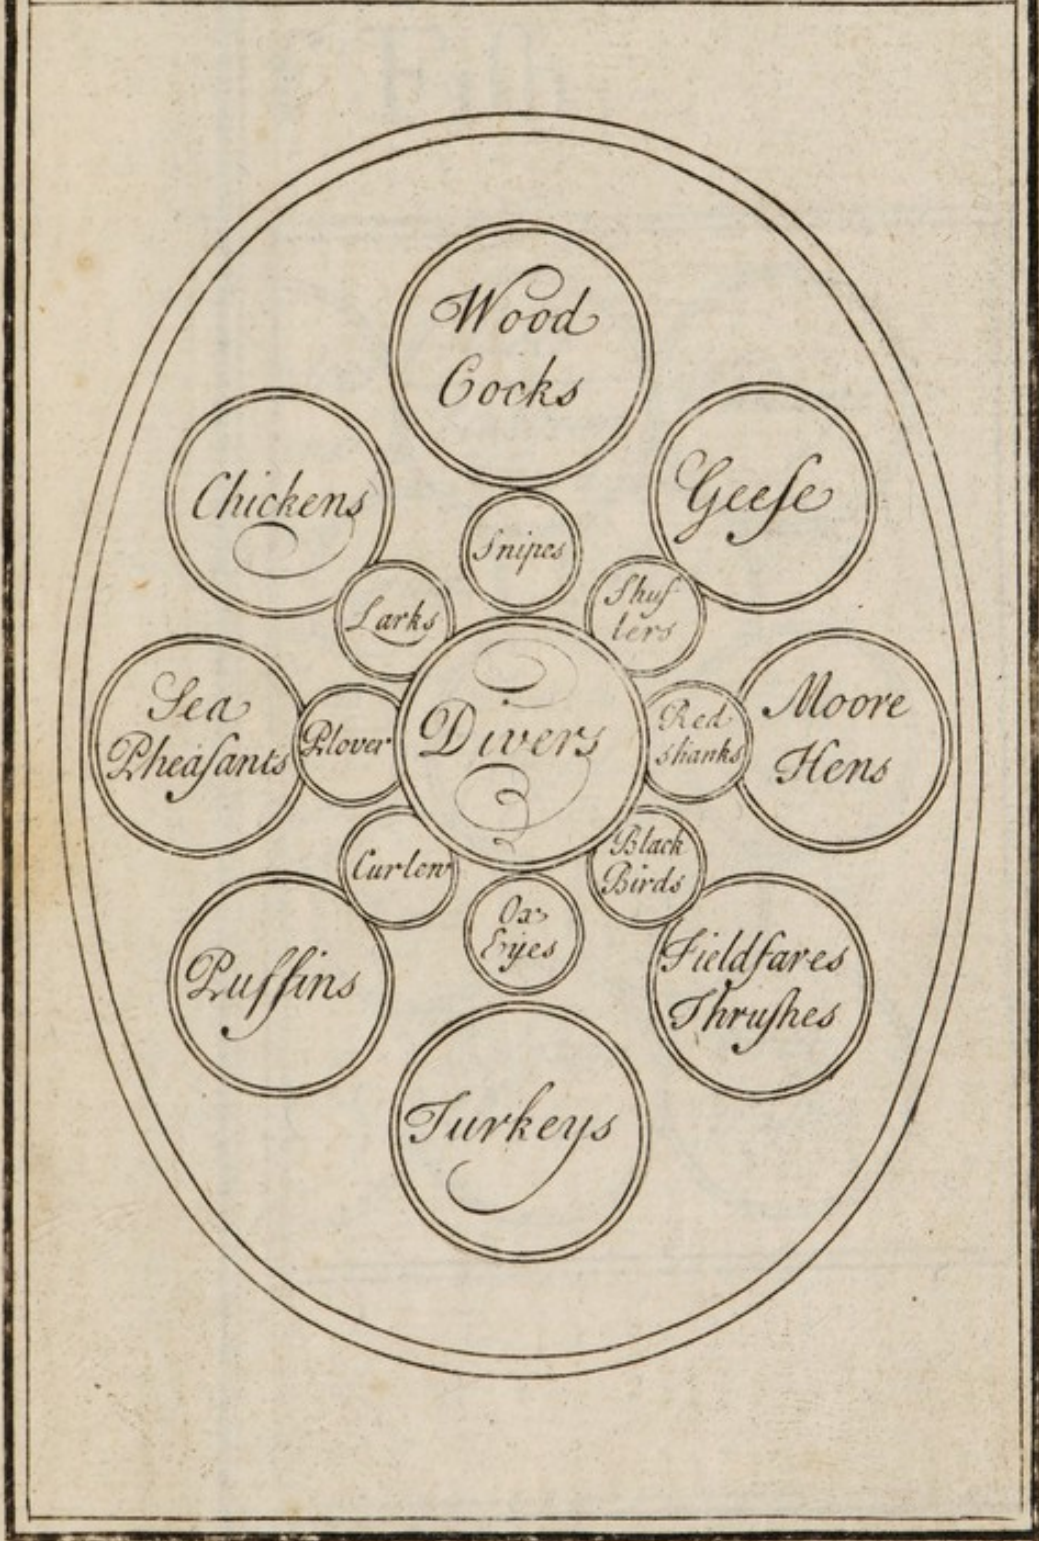 Wood
Cocks
Chickens
Geeſe
Snipes
Larks
Shuf
lers
Sea
Pheaſants
Plover
Divers
Red
shanks
Moore
Hens
Curlew
Black
Birds
Ox
Eyes
Puffins
Fieldfares
Thruſhes
Turkeys